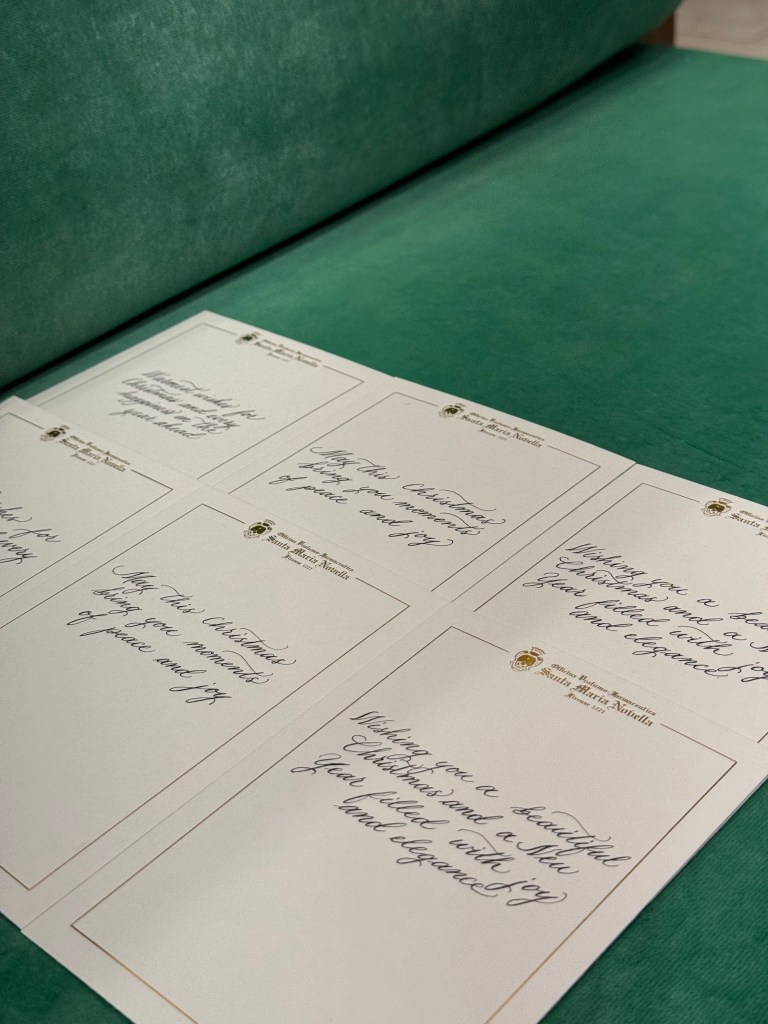 Officina Profumo Farmaceutica
Santa Maria Novella
Firenze 1221
Warmest wishes for
Christmas and every
happiness in the
year ahead
Officina Profumo Farmaceutica
Santa Maria Novella
Firenze 1221
May this Christmas
bring you moments
of peace and joy
Officina Profumo Farmaceutica
Santa Maria Novella
Wishing you a
Christmas and a
Year filled with joy
and elegance
Officina Profumo Farmaceutica
Santa Maria Novella
Firenze 1221
for
every
Officina Profumo Farmaceutica
Santa Maria Novella
Firenze 1221
May this Christmas
bring you moments
of peace and joy
Officina Profumo Farmaceutica
Santa Maria Novella
Firenze 1221
Wishing you a beautiful
Christmas and a New
Year filled with joy
and elegance